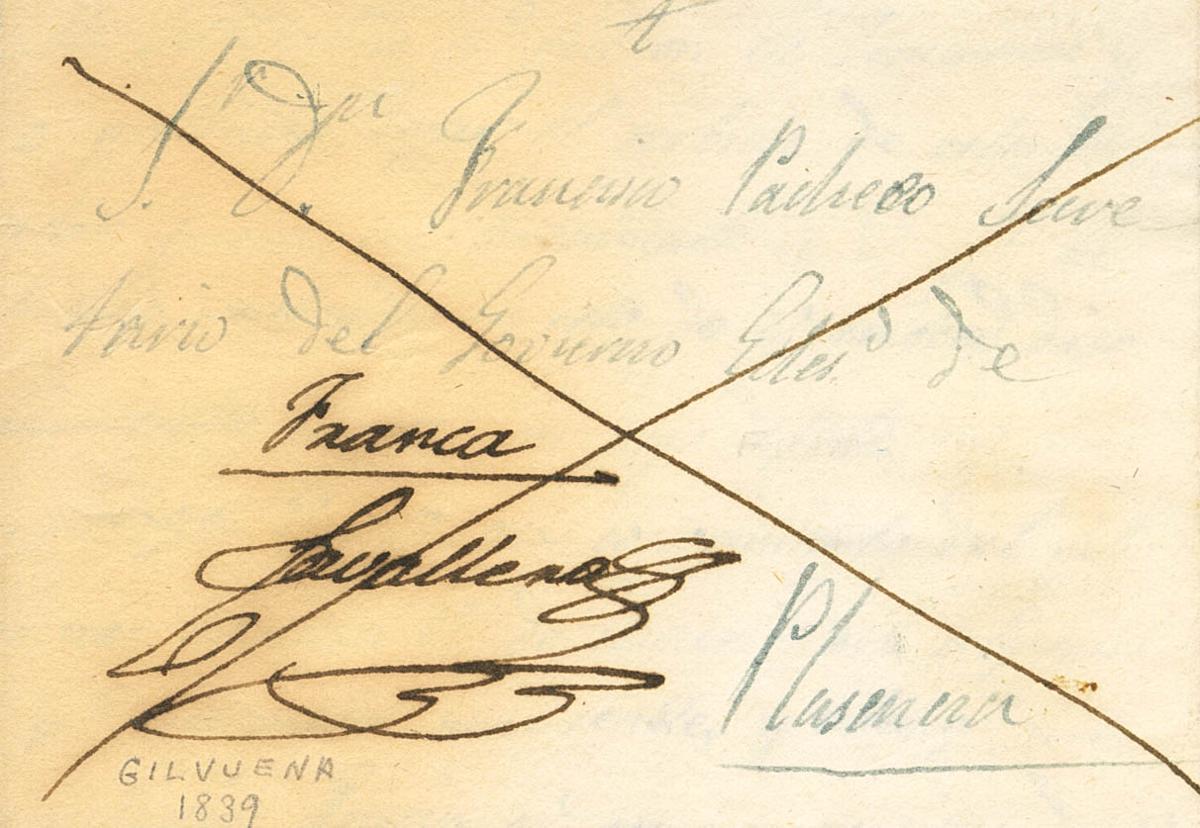 Sr. Dn
D. Francisco Pacheco Secre
tario del Govierno Ecles.º de
Franca
Plasencia
GILVUENA
1839